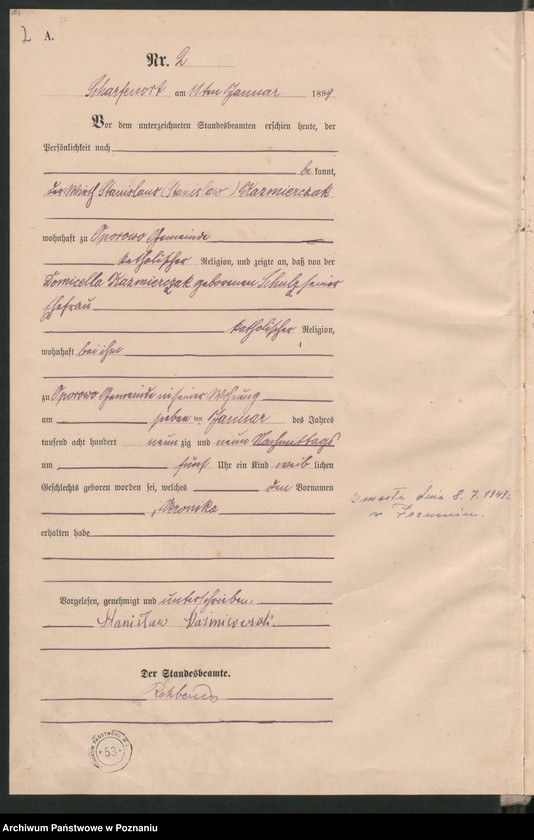 2 A.
Nr. 2
Scharfenort am 11ten Januar 1899
Vor dem unterzeichneten Standesbeamten erschien heute, der
Persönlichkeit nach
be kannt,
der Wirth Stanislaus (Stanislaw) Kazmierczak
wohnhaft zu Oporowo Gemeinde
katholischer Religion, und zeigte an, daß von der
Domicella Kazmierczak geborenen Schulz seiner
Ehefrau
katholischer Religion,
wohnhaft bei ihm
zu Oporowo Gemeinde in seiner Wohnung
am sieben ten Januar des Jahres
tausend acht hundert neun zig und neun Nachmittags
um fünf Uhr ein Kind weib lichen
Geschlechts geboren worden sei, welches den Vornamen
Veronika
erhalten habe
zmarła dnia 8. 7. 1949
w
Vorgelesen, genehmigt und unterschrieben.
Stanisław Kaśmierczak
Der Standesbeamte.
53
Archiwum Państwowe w Poznaniu